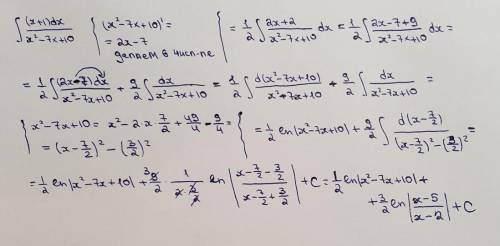 ∫ (x+1)dx / x²-7x+10 { (x²-7x+10)' = = 2x-7 делаем в числ-ле { = 1/2 ∫ 2x+2 / x²-7x+10 dx = 1/2 ∫ 2x-7+9 / x²-7x+10 dx =
= 1/2 ∫ (2x-7)dx / x²-7x+10 + 9/2 ∫ dx / x²-7x+10 = 1/2 ∫ d(x²-7x+10) / x²-7x+10 + 9/2 ∫ dx / x²-7x+10 =
{ x²-7x+10 = x²-2·x·7/2 + 49/4 - 9/4 = = (x-7/2)² - (3/2)² { = 1/2 ln|x²-7x+10| + 9/2 ∫ d(x-7/2) / (x-7/2)²-(3/2)² =
= 1/2 ln|x²-7x+10| + 9/2 · 1 / 2·3/2 ln| x-7/2-3/2 / x-7/2+3/2 | + C = 1/2 ln|x²-7x+10| +
+ 3/2 ln| x-5 / x-2 | + C